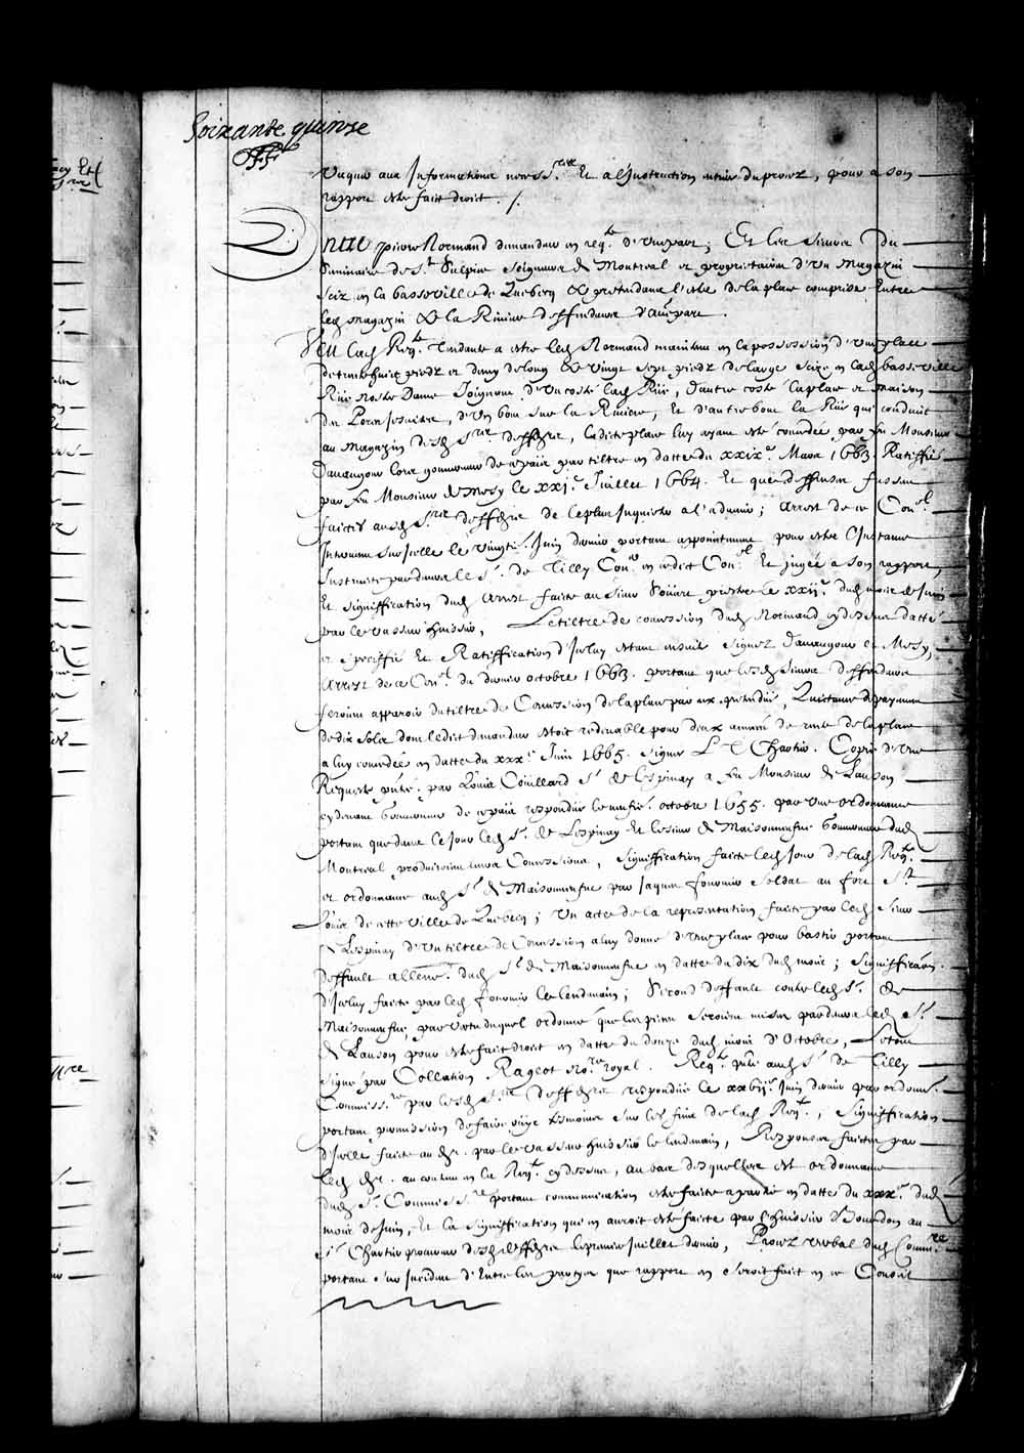 Soixante quinze
vacquer aux Informations necess.res Et a l'Instruction entiere du procez, pour a son
rapport estre faict droict ./.
Entre pierre Normand demandeur en req.te d'une part; Et les Sieurs du
Seminaire de S.t Sulpice Seigneurs de Montreal et proprietaires d'un Magazin
Scis en la basseville de Quebecq & pretendans l'estre de la place comprise Entre
led magazin & la Riviere deffendeurs d'autre part.
Veu lad Req.te tendante a estre led Normand maintenu en la possession d'une place
de trente huict piedz et demy de long & vingt sept piedz de large scize en lad basseville
Rüe nostre Dame Joignant d'un costé lad Rüe, d'autre costé la place et maison
du, d'un bout sur la Riviere, Et d'autre bout la Rüe qui conduit
au magazin desd S.rs deffend.rs, ladite place luy ayant esté concedée par feu Monsieur
Davaugour lors gouverneur de ce païs par tiltre en datte du xxix.e Mars 1663. Ratiffié
par feu Monsieur de Mesy le xxj.e Juillet 1664. Et que deffenses fussent
faictes ausd S.rs deffend.rs de le plus Inquieter a l'advenir; arrest de ce Con.el
Intervenu sur Icelle le vingt Juin dernier portant appointement pour estre l'Instance
Instruite pardevant le S.r de Tilly Con.er en cedict Con.el Et jugée a son rapport,
Et signiffication dud arrest faicte au Sieur Soüart prestre le xxij.e dud mois de Juin
par levasseur huissier, Le tiltre de concession dud Normand cy dessus datté
et speciffié Et Ratiffication d'Iceluy estant ensuite signez Davaugour et Mesy,
Arrest de ce Con.el du dernier octobre 1663. portant que lesd Sieurs deffendeurs
feroient apparoir du tiltre de Concession de la place par eux pretendüe, Quictance de payement
de dix solz dont ledict demandeur estoit redevable pour deux années de rente de la place
a luy concedée en datte du xxx.e Juin 1665. signée Chartier. Copie d'une
Requeste pnteé par Loüis Coüillard S.r de Lespinay a feu Monsieur de Lauson
cy devant Gouverneur de ce païs respondüe le octobre 1655. par une ordonnance
portant que dans ce Jour led S.r de Lespinay Et le sieur de Maisonneufve Gouverneur dud
Montreal produiroient leurs Concessions, Signiffication faicte led Jour de lad Req.te
et ordonnance aud S.r de Maisonneufve par Jaques fournier Soldat au fort S.t
Loüis de cette ville de Quebecq; Un acte de la representation faicte par led Sieur
de Lespinay d'un tiltre de Concession a luy donné d'une place pour bastir portant
deffault dud S.r de Maisonneufve en datte du dix dud mois; Signiffication
d'Iceluy faicte par led fournier le lendemain; Second deffault contre led S.r de
Maisonneufve, par vertu duquel ordonné que les pieces seroient mises pardevers led S.r
de Lauson pour estre faict droict en datte du douze dud mois d'Octobre, Le tout
signé par Collation Rageot No.re royal. Req.te pnteé aud S.r de Tilly
Commiss.re par lesd S.rs deffend.rs respondüe le xxvij.e Juin dernier par ordonn.ce
portant permission de faire oüyr tesmoins sur les fins de lad Req.te, Signiffication
d'Icelle faicte au d.r par levasseur huissier le lendemain, Responses faictes par
led d.r au contenu en la Req.te cy dessus, au bas desquelles est ordonnance
dud S.r Commiss.re portant communication estre faicte a partie en datte du xxx.e dud
mois de Juin, Et la signiffication qui en auroit esté faicte par l'huissier Bourdon au
S.r Chartier procureur desd deffend.rs le premier Juillet dernier, Procez verbal dud Comm.re
portant d'Entre les partyes que rapport en seroit faict en ce Conseil